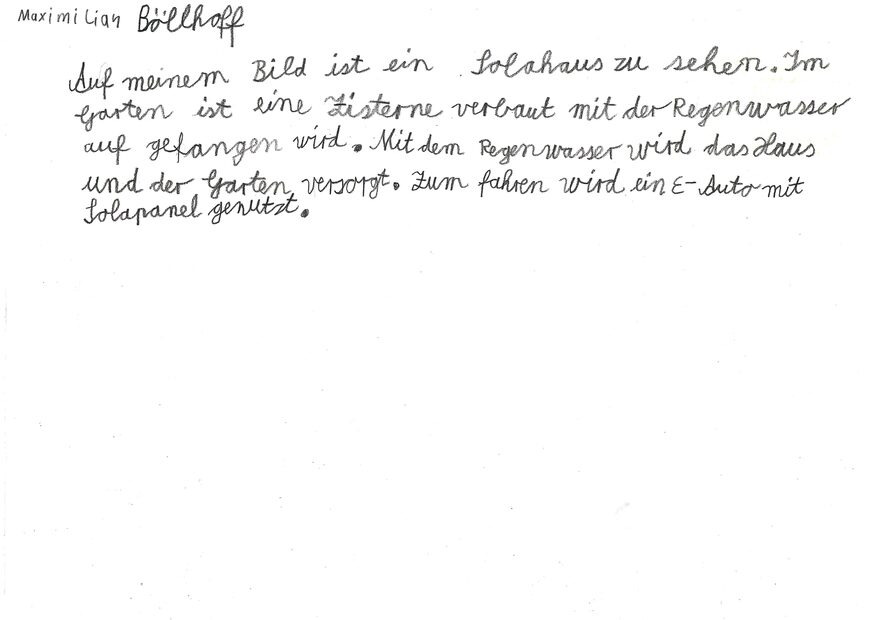 Maximilian Böllhoff
Auf meinem Bild ist ein Solahaus zu sehen. Im
Garten ist eine Zisterne verbaut mit der Regenwasser
auf gefangen wird. Mit dem Regenwasser wird das Haus
und der Garten versorgt. Zum fahren wird ein E-Auto mit
Solapanel genutzt.